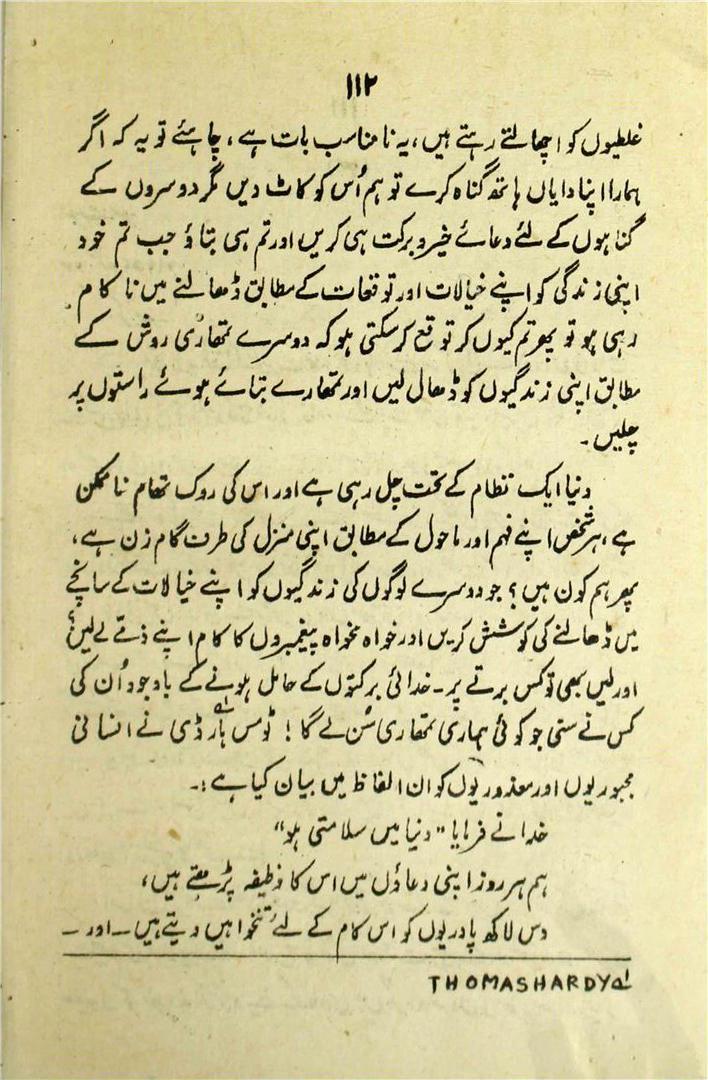 ۱۱۲
غلطیوں کو اچھالتے رہتے ہیں، یہ نا مناسب بات ہے، چاہئے تو یہ کہ اگر
ہمارا اپنا دایاں ہاتھ گناہ کرے تو ہم اُس کو کاٹ دیں مگر دوسروں کے
گناہوں کے لئے دعائے خیر و برکت ہی کریں اور تم ہی بتاؤ جب تم خود
اپنی زندگی کو اپنے خیالات اور توقعات کے مطابق ڈھالنے میں ناکام
رہی ہو تو پھر تم کیوں کر توقع کر سکتی ہو کہ دوسرے تمھاری روش کے
مطابق اپنی زندگیوں کو ڈھال لیں اور تمھارے بتائے ہوئے راستوں پر
چلیں۔
دنیا ایک نظام کے تحت چل رہی ہے اور اس کی روک تھام نا ممکن
ہے، ہر شخص اپنے فہم اور ماحول کے مطابق اپنی منزل کی طرف گام زن ہے،
پھر ہم کون ہیں؟ جو دوسرے لوگوں کی زندگیوں کو اپنے خیالات کے سانچے
میں ڈھالنے کی کوشش کریں اور خواہ مخواہ پیغمبروں کا کام اپنے ذمے لے لیں؟
اور لیں بھی تو کس برتے پر۔ خدائی برکتوں کے حامل ہونے کے باوجود اُن کی
کس نے سنی جو کوئی ہماری تمھاری سُن لے گا! ٹومس ہارڈی لہ نے انسانی
مجبوریوں اور معذوریوں کو ان الفاظ میں بیان کیا ہے :۔
خدا نے فرمایا "دنیا میں سلامتی ہو"
ہم ہر روز اپنی دعاؤں میں اس کا وظیفہ پڑھتے ہیں،
دس لاکھ پادریوں کو اس کام کے لئے تنخواہیں دیتے ہیں ۔ اور ۔
لہ THOMAS HARDY